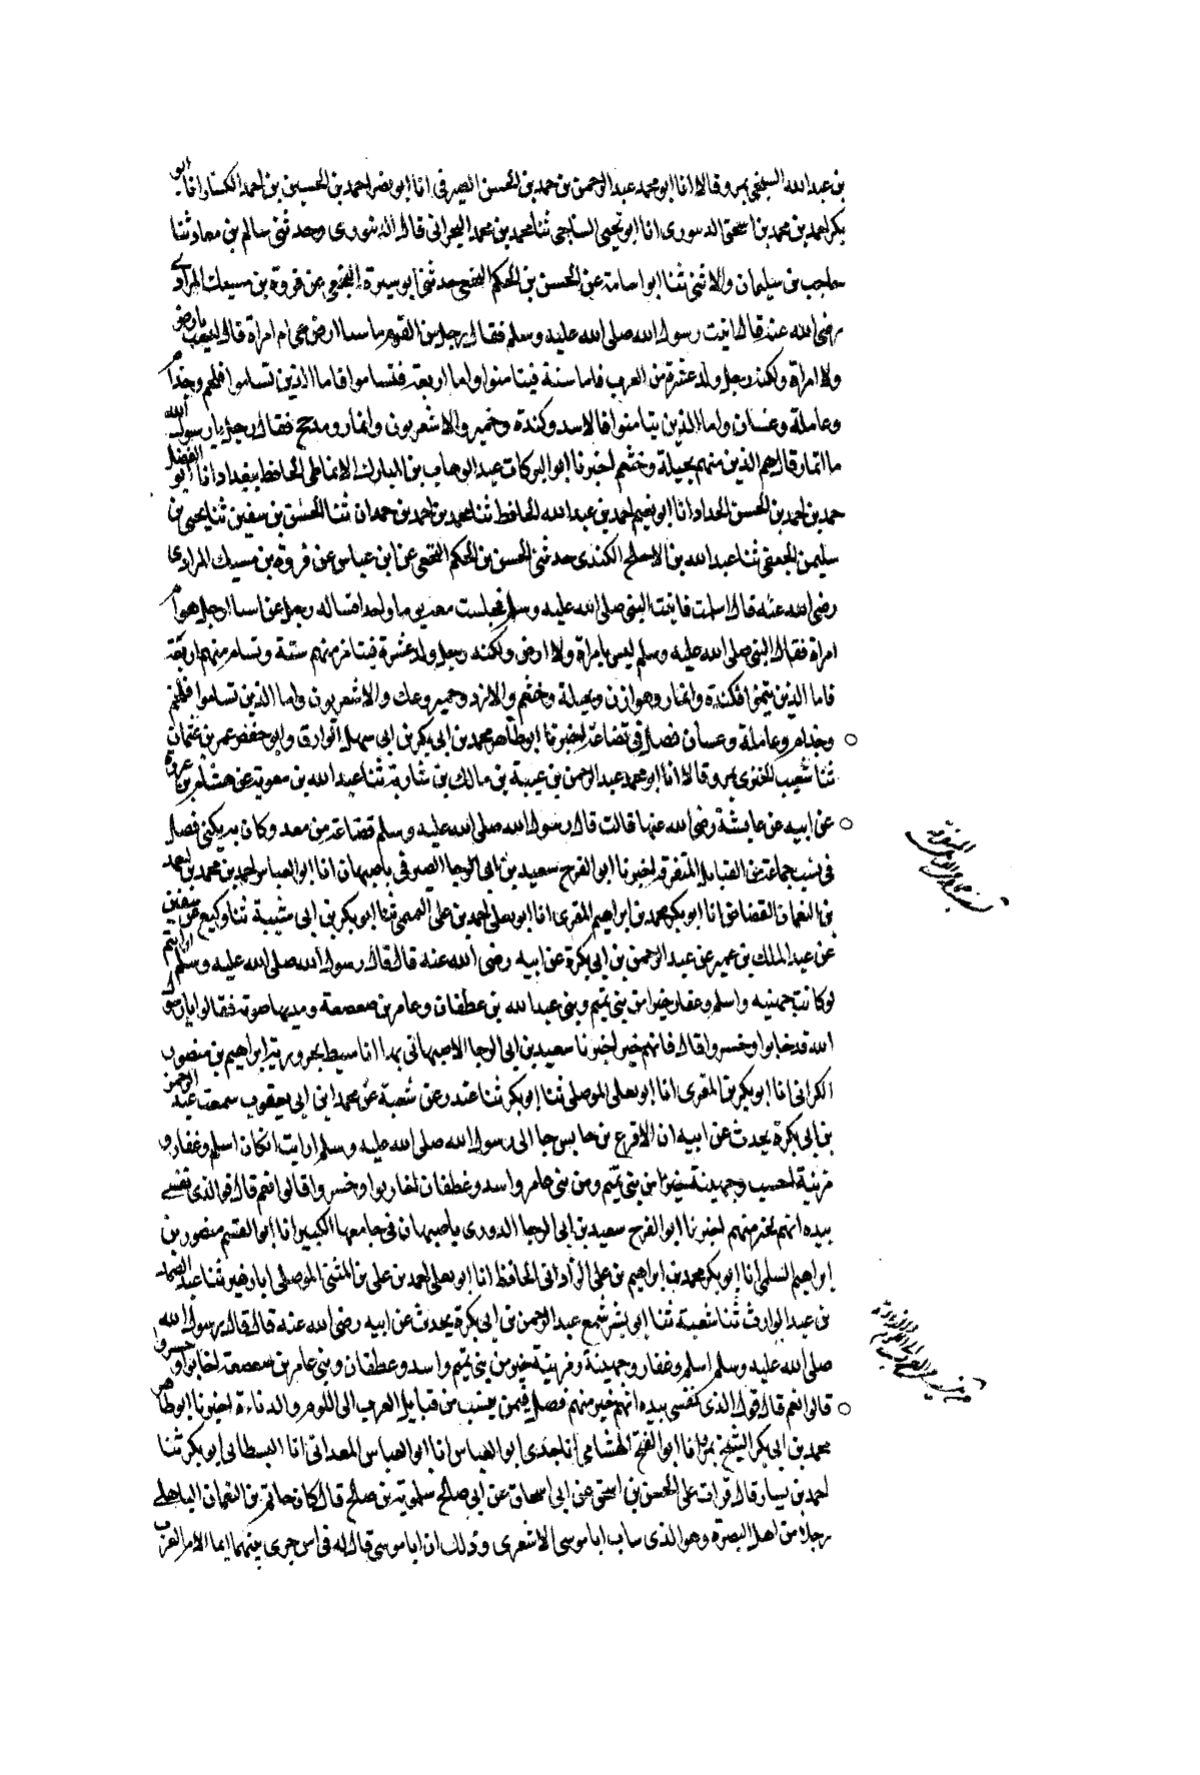 بن عبد الله السبخي بمرو قالا انا ابو محمد عبد الرحمن بن حمد بن الحسن الصيرفي انا ابو نصر احمد بن الحسين بن احمد الكسار انا ابو
بكر احمد بن محمد بن اسحق الدينوري انا ابو يحيى الساجي ثنا محمد بن محمد البحراني قال الدينوري وحدثني سالم بن معاذ ثنا
حاجب بن سليمان والا ثنى ثنا ابو اسامة عن الحسن بن الحكم النخعي حدثني ابو سبرة النخعي عن فروة بن مسيك المرادي
رضي الله عنه قال اتيت رسول الله صلى الله عليه وسلم فقال رجل من القوم ما سبا ارض هي ام امراة قال ليست بارض
ولا امراة ولكنه رجل ولد عشرة من العرب فاما ستة فيتامنوا واما اربعة فتساموا فاما الذين تساموا فلخم وجذام
وعاملة وغسان واما الذين تيامنوا فالاسد وكندة وحمير والاشعريون وانمار ومذحج فقال رجل يا رسول الله
ما انمار قال هم الذين منهم بجيلة وخثعم اخبرنا ابو البركات عبد الوهاب بن المبارك الانماطي الحافظ ببغداد انا ابو الفضل
حمد بن احمد بن الحسن الحداد انا ابو نعيم احمد بن عبد الله الحافظ ثنا محمد بن احمد بن حمدان ثنا الحسن بن سفين ثنا يحيى بن
سليمن الجعفي ثنا عبد الله بن الاجلح الكندي حدثني الحسن بن الحكم النخعي عن ابن عباس عن فروة بن مسيك المرادي
رضي الله عنه قال اسلمت فاتيت النبي صلى الله عليه وسلم فجلست معه يوما واحدا فساله رجل عن سبا ارجل هو ام
امراة فقال النبي صلى الله عليه وسلم ليس بامراة ولا ارض ولكنه رجل ولد عشرة فيتامن منهم ستة وتسام منهم اربعة
فاما الذين تيمنوا فكندة وانمار وهوازن وبجيلة وخثعم والازد وحمير وعك والاشعريون واما الذين تساموا فلخم
وجذام وعاملة وغسان فصل في قضاعة اخبرنا ابو طاهر محمد بن ابي بكر بن ابي سهل الوراق وابو حفص عمر بن عثمان
ثنا شعيب الجنزي بمرو قالا انا ابو محمد عبد الرحمن بن عيبة بن مالك بن شاربة ثنا عبد الله بن معوية عن هشام بن عروة
عن ابيه عن عايشة رضي الله عنها قالت قال رسول الله صلى الله عليه وسلم قضاعة من معد وكان به يكنى فصل
في نسب جماعة من القبايل المتفرقة اخبرنا ابو الفرج سعيد بن ابي الرجا الصيرفي باصبهان انا ابو العباس احمد بن محمد بن احمد
بن النعمان القضاض انا ابو بكر محمد بن ابراهيم المقرى انا ابو يعلى احمد بن علي التميمي ثنا ابو بكر بن ابي شيبة ثنا وكيع عن سفين
عن عبد الملك بن عمير عن عبد الرحمن بن ابي بكرة عن ابيه رضي الله عنه قال قال رسول الله صلى الله عليه وسلم ارايتم
لو كانت جهينه واسلم وغفار خيرا من بني تميم وبني عبد الله بن غطفان وعامر بن صعصعة ومد بها صوته فقالوا يا رسول
الله قد خابوا وخسروا قال فانهم خير اخبرنا سعيد بن ابي الرجا الاصبهاني بها انا سبط بحرويه ابراهيم بن منصور
الكراني انا ابو بكر بن المقرى انا ابو يعلى الموصلي ثنا ابو بكر ثنا غندر عن شعبة عن محمد ابن ابي يعقوب سمعت عبد الرحمن
بن ابي بكرة يحدث عن ابيه ان الاقرع بن حابس جا الى رسول الله صلى الله عليه وسلم ارايت ان كان اسلم وغفار و
مزينة احسب وجهينة خيرا من بني تميم ومن بني عامر واسد وغطفان اخابوا وخسروا قالوا نعم قال فوالذي نفسي
بيده انهم لخير منهم اخبرنا ابو الفرج سعيد بن ابي الرجا الدوري باصبهان في جامعها الكبير انا ابو القسم منصور بن
ابراهيم السلمي انا ابو بكر محمد بن ابراهيم بن علي الزاداني الحافظ انا ابو يعلى احمد بن علي بن المثنى الموصلي انا زهير ثنا عبد الصمد
بن عبد الوارث ثنا شعبة ثنا ابو بشر سمع عبد الرحمن بن ابي بكرة يحدث عن ابيه رضي الله عنه قال قال رسول الله
صلى الله عليه وسلم اسلم وغفار وجهينة ومزينة خير من بني تميم واسد وغطفان وبني عامر بن صعصعة اخابوا وخسروا
قالوا نعم قال فوالذي نفسي بيده انهم خير منهم فصل فيمن ينسب من قبايل العرب الى اللوم والدناءة اخبرنا ابو طاهر
محمد بن ابي بكر الشيخ بمرو انا ابو الفتح الهشامي انا جدي ابو العباس انا ابو العباس المعداني انا البسطامي ابو بكر ثنا
احمد بن يسار قال قرات على الحسن بن اسحق عن ابي اسحاق عن ابي صالح سلمويه بن صالح قال كان حاتم بن النعمان الباهلي
رجلا من اهل البصرة وهو الذي ساب ابا موسى الاشعري وذلك ان ابا موسى قال له في امر جرى بينهما انما الامر العرب